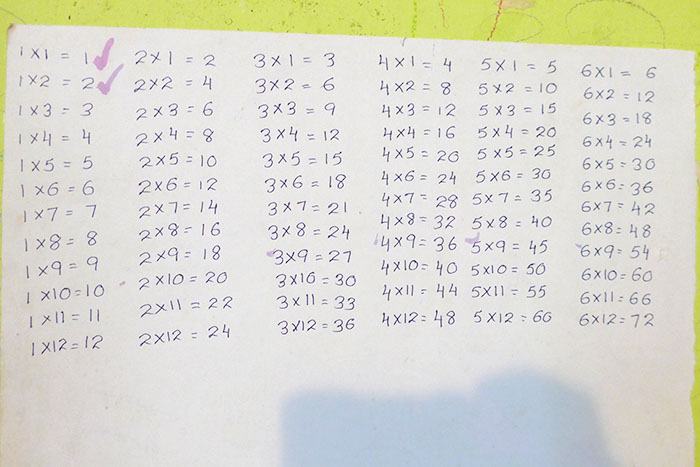 1x1 = 1
1x2 = 2
1x3 = 3
1x4 = 4
1x5 = 5
1x6 = 6
1x7 = 7
1x8 = 8
1x9 = 9
1x10=10
1x11 = 11
1x12=12
2x1 = 2
2x2 = 4
2x3 = 6
2x4 = 8
2x5 = 10
2x6 = 12
2x7= 14
2x8 = 16
2x9 = 18
2x10 = 20
2x11 = 22
2x12 = 24
3x1 = 3
3x2 = 6
3x3 = 9
3x4 = 12
3x5 = 15
3x6 = 18
3x7 = 21
3x8 = 24
3x9 = 27
3x10 = 30
3x11 = 33
3x12 = 36
4x1 = 4
4x2 = 8
4x3 = 12
4x4 = 16
4x5 = 20
4x6 = 24
4x7 = 28
4x8 = 32
4x9 = 36
4x10= 40
4x11 = 44
4x12= 48
5x1 = 5
5x2 = 10
5x3 = 15
5x4 = 20
5x5 = 25
5x6 = 30
5x7 = 35
5x8 = 40
5x9 = 45
5x10= 50
5x11= 55
5x12 = 60
6x1 = 6
6x2 = 12
6x3 = 18
6x4 = 24
6x5 = 30
6x6= 36
6x7 = 42
6x8 = 48
6x9= 54
6x10=60
6x11= 66
6x12= 72